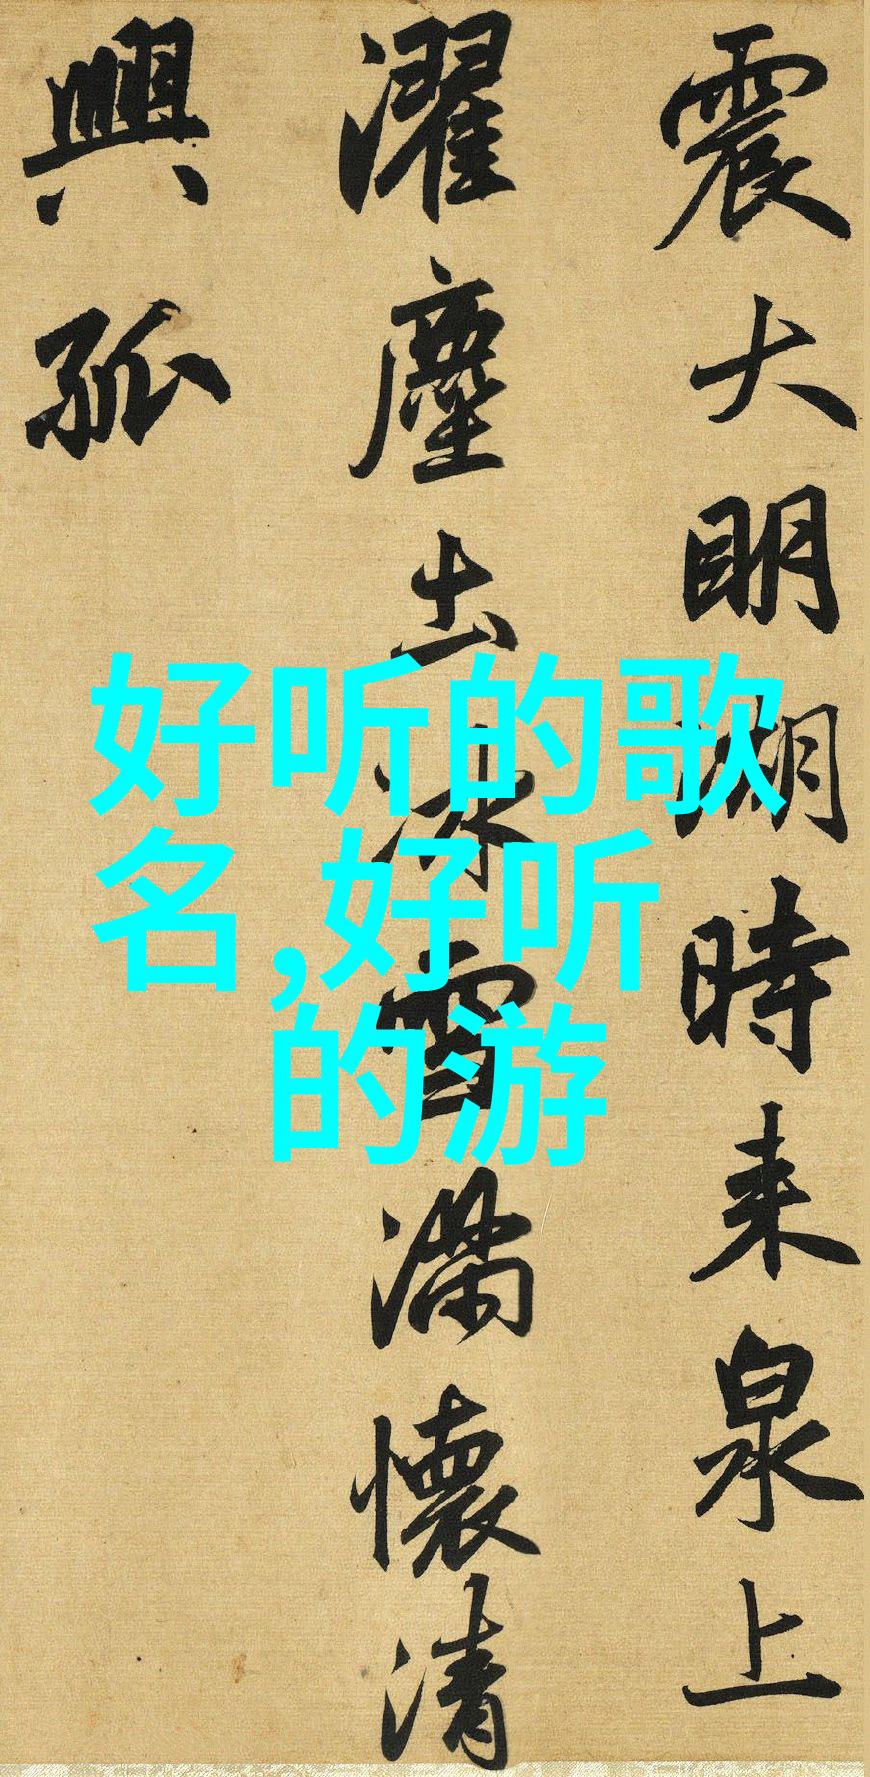 震大明湖時来泉上
濯塵土冰雪滿懷清
興孤
好听的歌
名,好听
的游